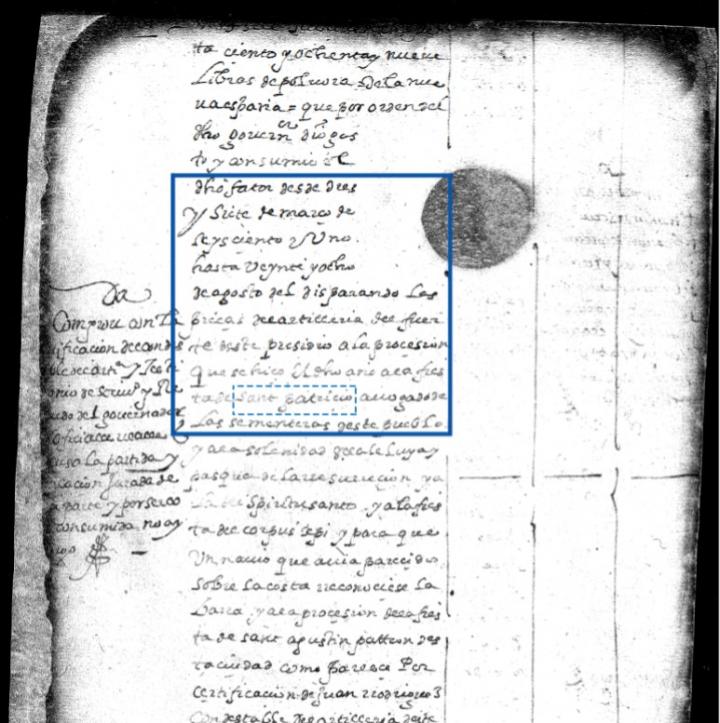 ta ciento y ochenta y nueve
Libras de polvora de la nue
va españa = que por orden del
dho govern dio gas
to y consumio el
dho fator desde dies
y Siete de março de
seys ciento s y Uno
hasta Veynte y ocho
de agosto del disparando las
pieças de artilleria del fuer
te deste presidio a la procesion
que se hiço el dho año a la fies
ta de sant patricio avogado de
Las sementeras deste pueblo
y a la solenidad de aleluya y
pasqua de la resureccion y a
la del Spiritu santo y a la fies
ta de corpus xpi y para que
Un navio que avia parecido
sobre la costa reconociese la
barra y a la procesion de la fies
ta de sant agustin patron des
ta ciudad como parece Por
certificacion de juan rrodrigues
Condestable de artilleria deste
Da
Comprou con la
tificacion
y
del governador
oficiales
la partida y
cacion jurada de
parte y por seco
consumida no ay